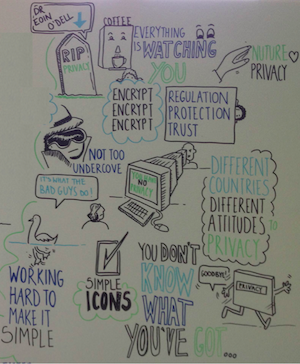 DR
EOIN
O'DELL
COFFEE
EVERYTHING
IS WATCHING
YOU
RIP
PRIVACY
NUTURE
PRIVACY
ENCRYPT
ENCRYPT
ENCRYPT
REGULATION
PROTECTION
TRUST
NOT TOO
UNDERCOVE
IT'S WHAT THE
BAD GUYS DO!
YOU HAVE
NO
PRIVACY
DIFFERENT
COUNTRIES
DIFFERENT
ATTITUDES to
PRIVACY
WORKING
HARD TO
MAKE IT
SIMPLE
SIMPLE
ICONS
YOU DON'T
KNOW
WHAT
YOU'VE GOT...
GOODBYE!
PRIVACY